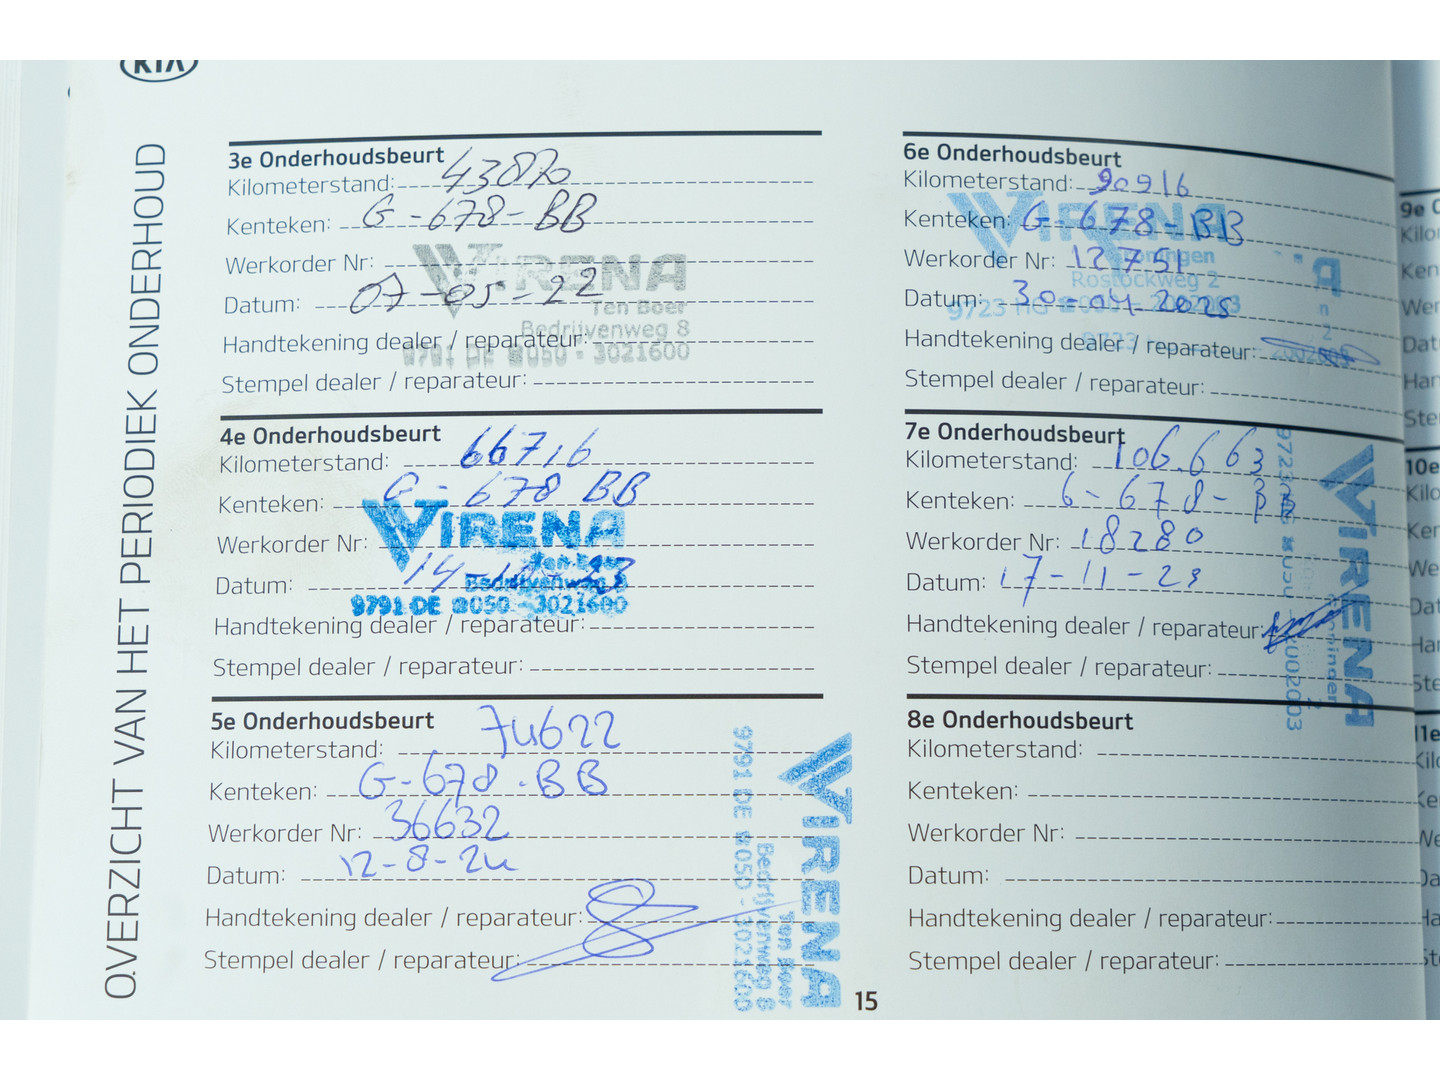 KIA
OVERZICHT VAN HET PERIODIEK ONDERHOUD
3e Onderhoudsbeurt
Kilometerstand: 43870
Kenteken: G-678-BB
Werkorder Nr:
Datum: 07-05-22
Handtekening dealer / reparateur:
Stempel dealer / reparateur:
VIRENA
Ten Boer
Bedrijvenweg 8
9791 DE ☎050 - 3021600
4e Onderhoudsbeurt
Kilometerstand: 66716
Kenteken: G-678 BB
Werkorder Nr:
Datum: 14-
Handtekening dealer / reparateur:
Stempel dealer / reparateur:
VIRENA
Ten Boer
Bedrijvenweg 8
9791 DE ☎050 - 3021600
5e Onderhoudsbeurt
Kilometerstand: 74622
Kenteken: G-678-BB
Werkorder Nr: 36632
Datum: 12-8-24
Handtekening dealer / reparateur:
Stempel dealer / reparateur:
VIRENA
Ten Boer
Bedrijvenweg 8
9791 DE ☎050 - 3021600
15
6e Onderhoudsbeurt
Kilometerstand: 90916
Kenteken: G-678-BB
Werkorder Nr: 12751
Datum: 30-04-2025
Handtekening dealer / reparateur:
Stempel dealer / reparateur:
VIRENA
Groningen
Rostockweg 2
9723
7e Onderhoudsbeurt
Kilometerstand: 106.663
Kenteken: G-678-BB
Werkorder Nr: 18280
Datum: 17-11-25
Handtekening dealer / reparateur:
Stempel dealer / reparateur:
VIRENA
8e Onderhoudsbeurt
Kilometerstand:
Kenteken:
Werkorder Nr:
Datum:
Handtekening dealer / reparateur:
Stempel dealer / reparateur:
9e
10e
11e